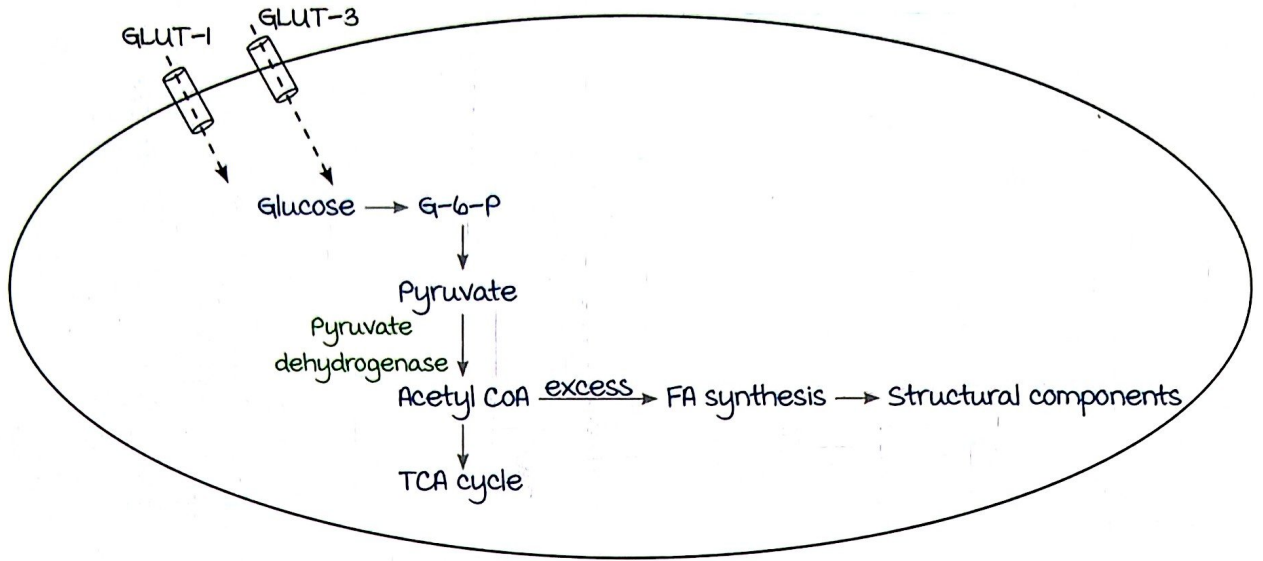 GLUT-1
GLUT-3
Glucose → G-6-P
Pyruvate
Pyruvate
dehydrogenase
Acetyl CoA excess → FA synthesis → Structural components
TCA cycle